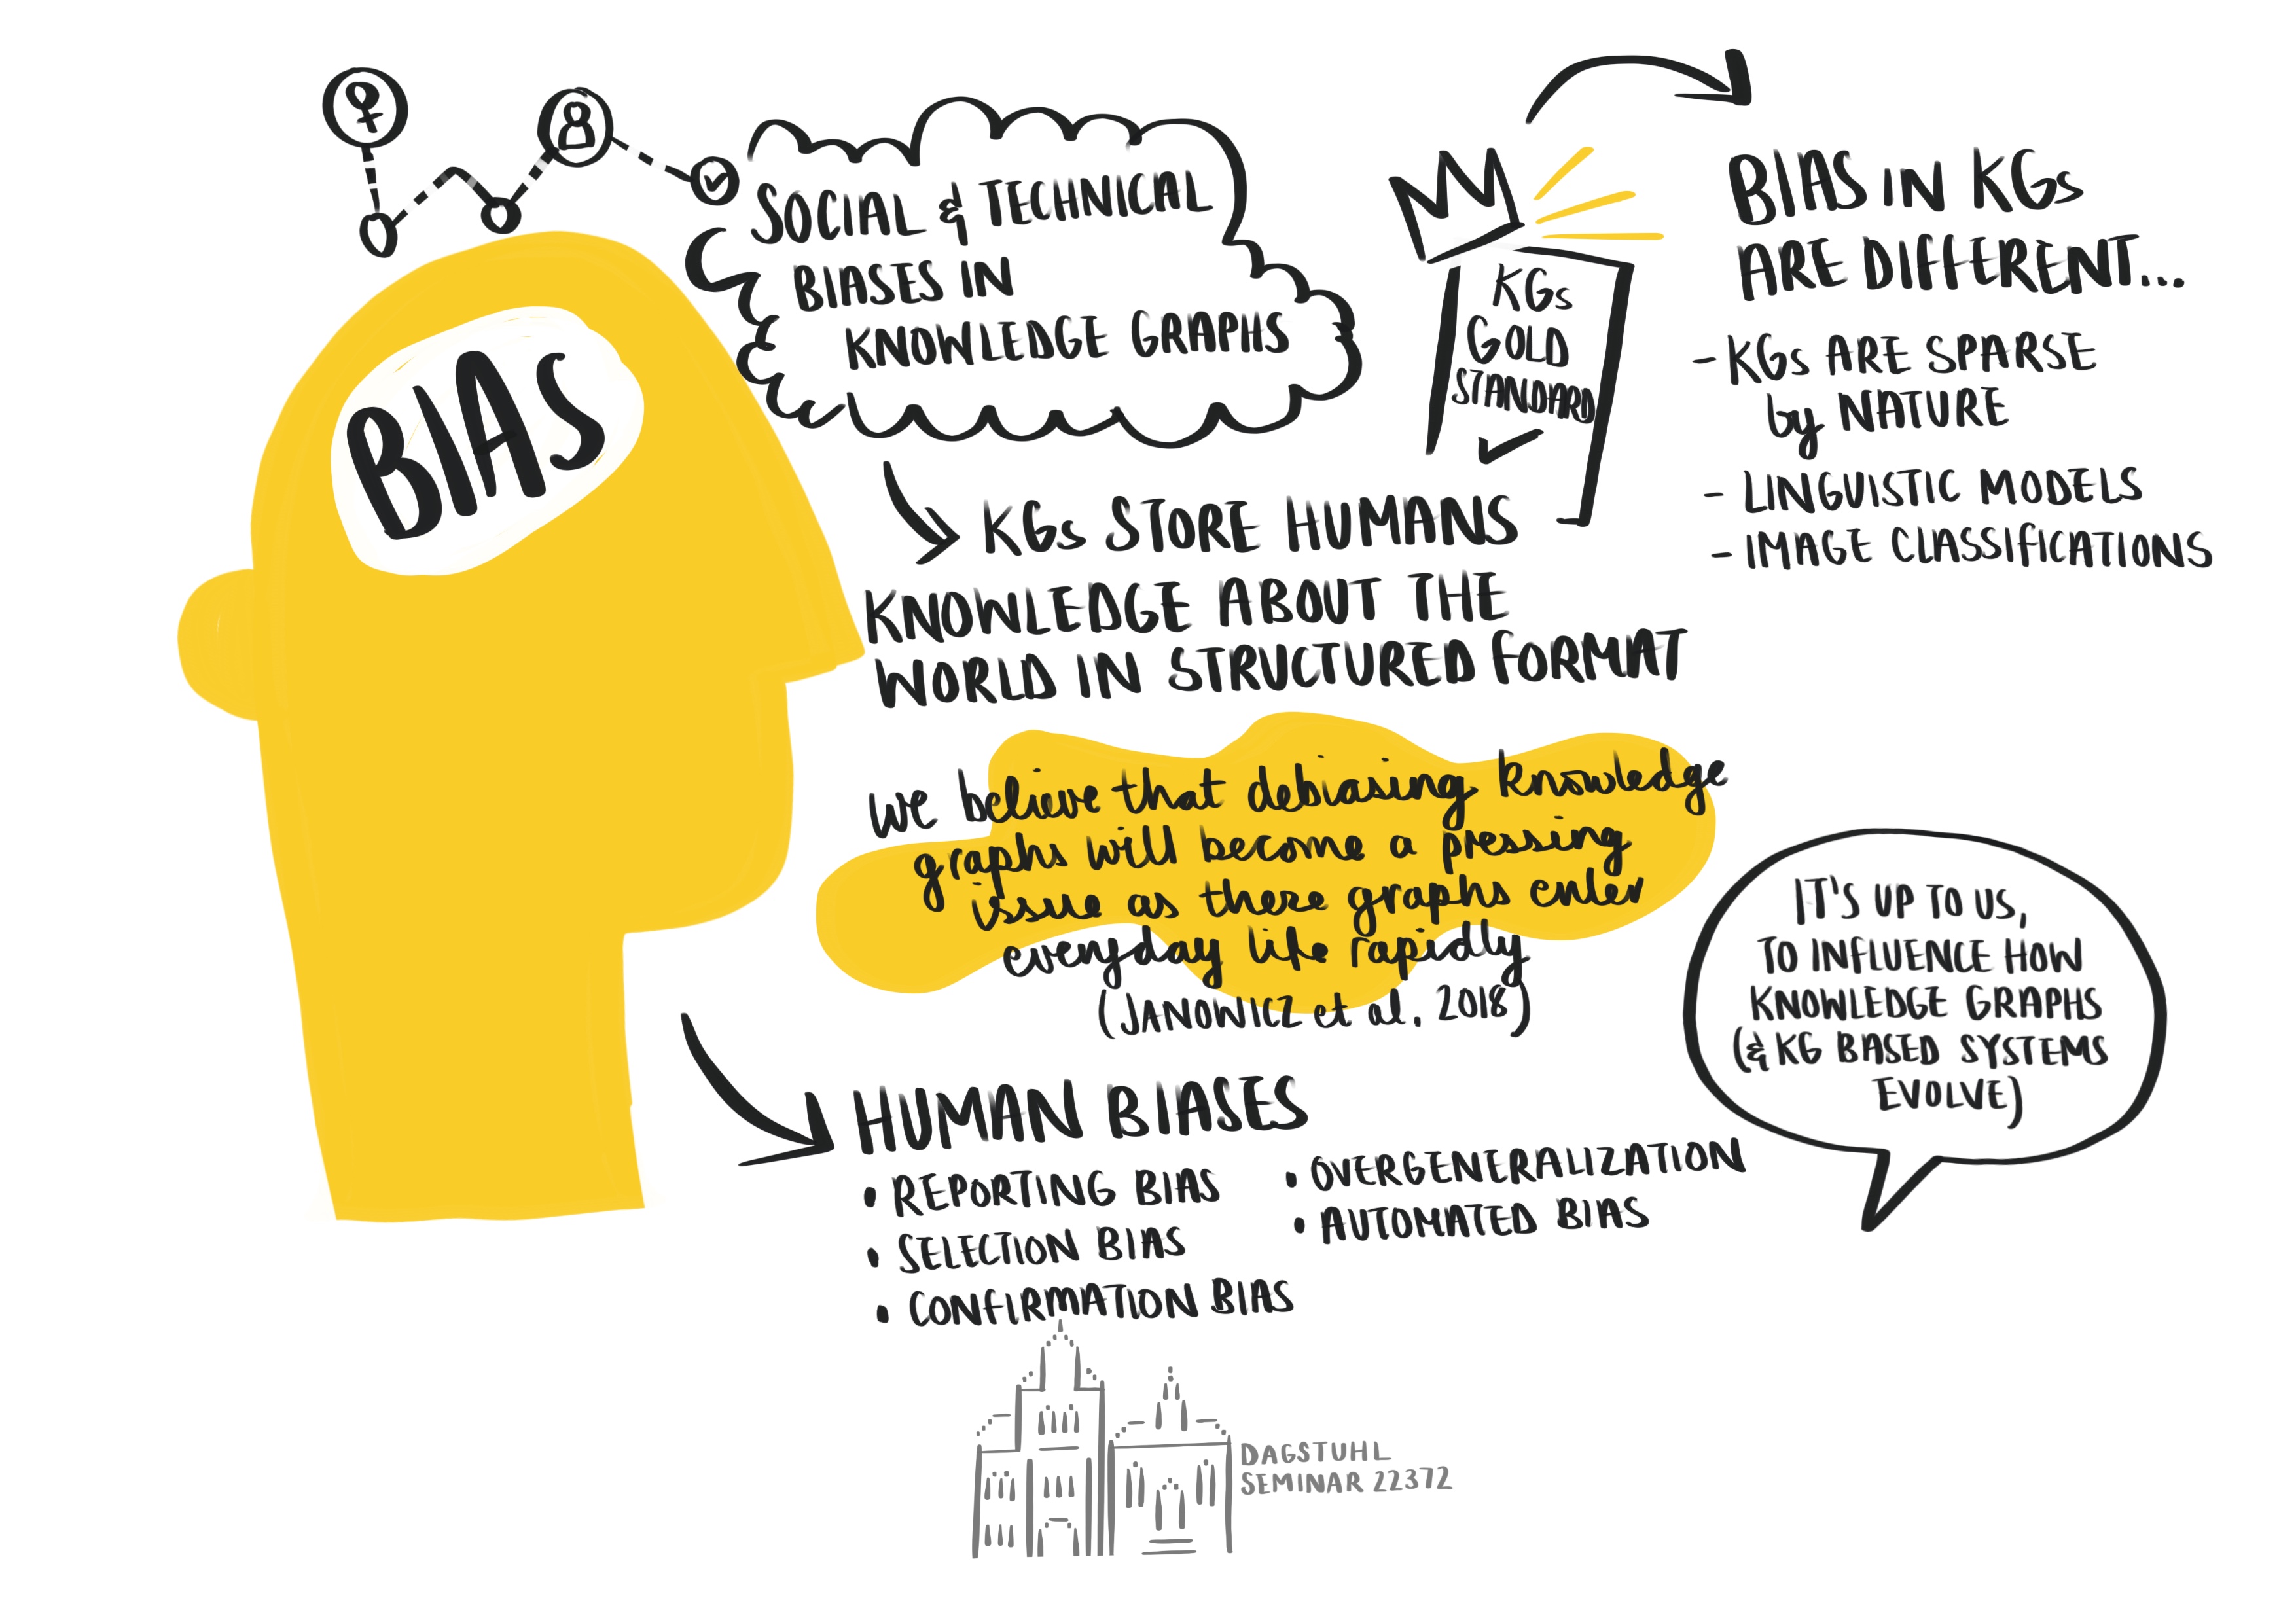 BIAS
SOCIAL & TECHNICAL
BIASES IN
KNOWLEDGE GRAPHS
KGs
GOLD
STANDARD
BIAS IN KGs
ARE DIFFERENT...
- KGs ARE SPARSE
by NATURE
- LINGUISTIC MODELS
- IMAGE CLASSIFICATIONS
KGs STORE HUMANS
KNOWLEDGE ABOUT THE
WORLD IN STRUCTURED FORMAT
we believe that debiasing knowledge
graphs will become a pressing
issue as these graphs enter
everyday life rapidly
(JANOWICZ et al. 2018)
IT'S UP TO US,
TO INFLUENCE HOW
KNOWLEDGE GRAPHS
(& KG BASED SYSTEMS
EVOLVE)
HUMAN BIASES
• REPORTING BIAS
• SELECTION BIAS
• CONFIRMATION BIAS
• OVERGENERALIZATION
• AUTOMATED BIAS
DAGSTUHL
SEMINAR 22372